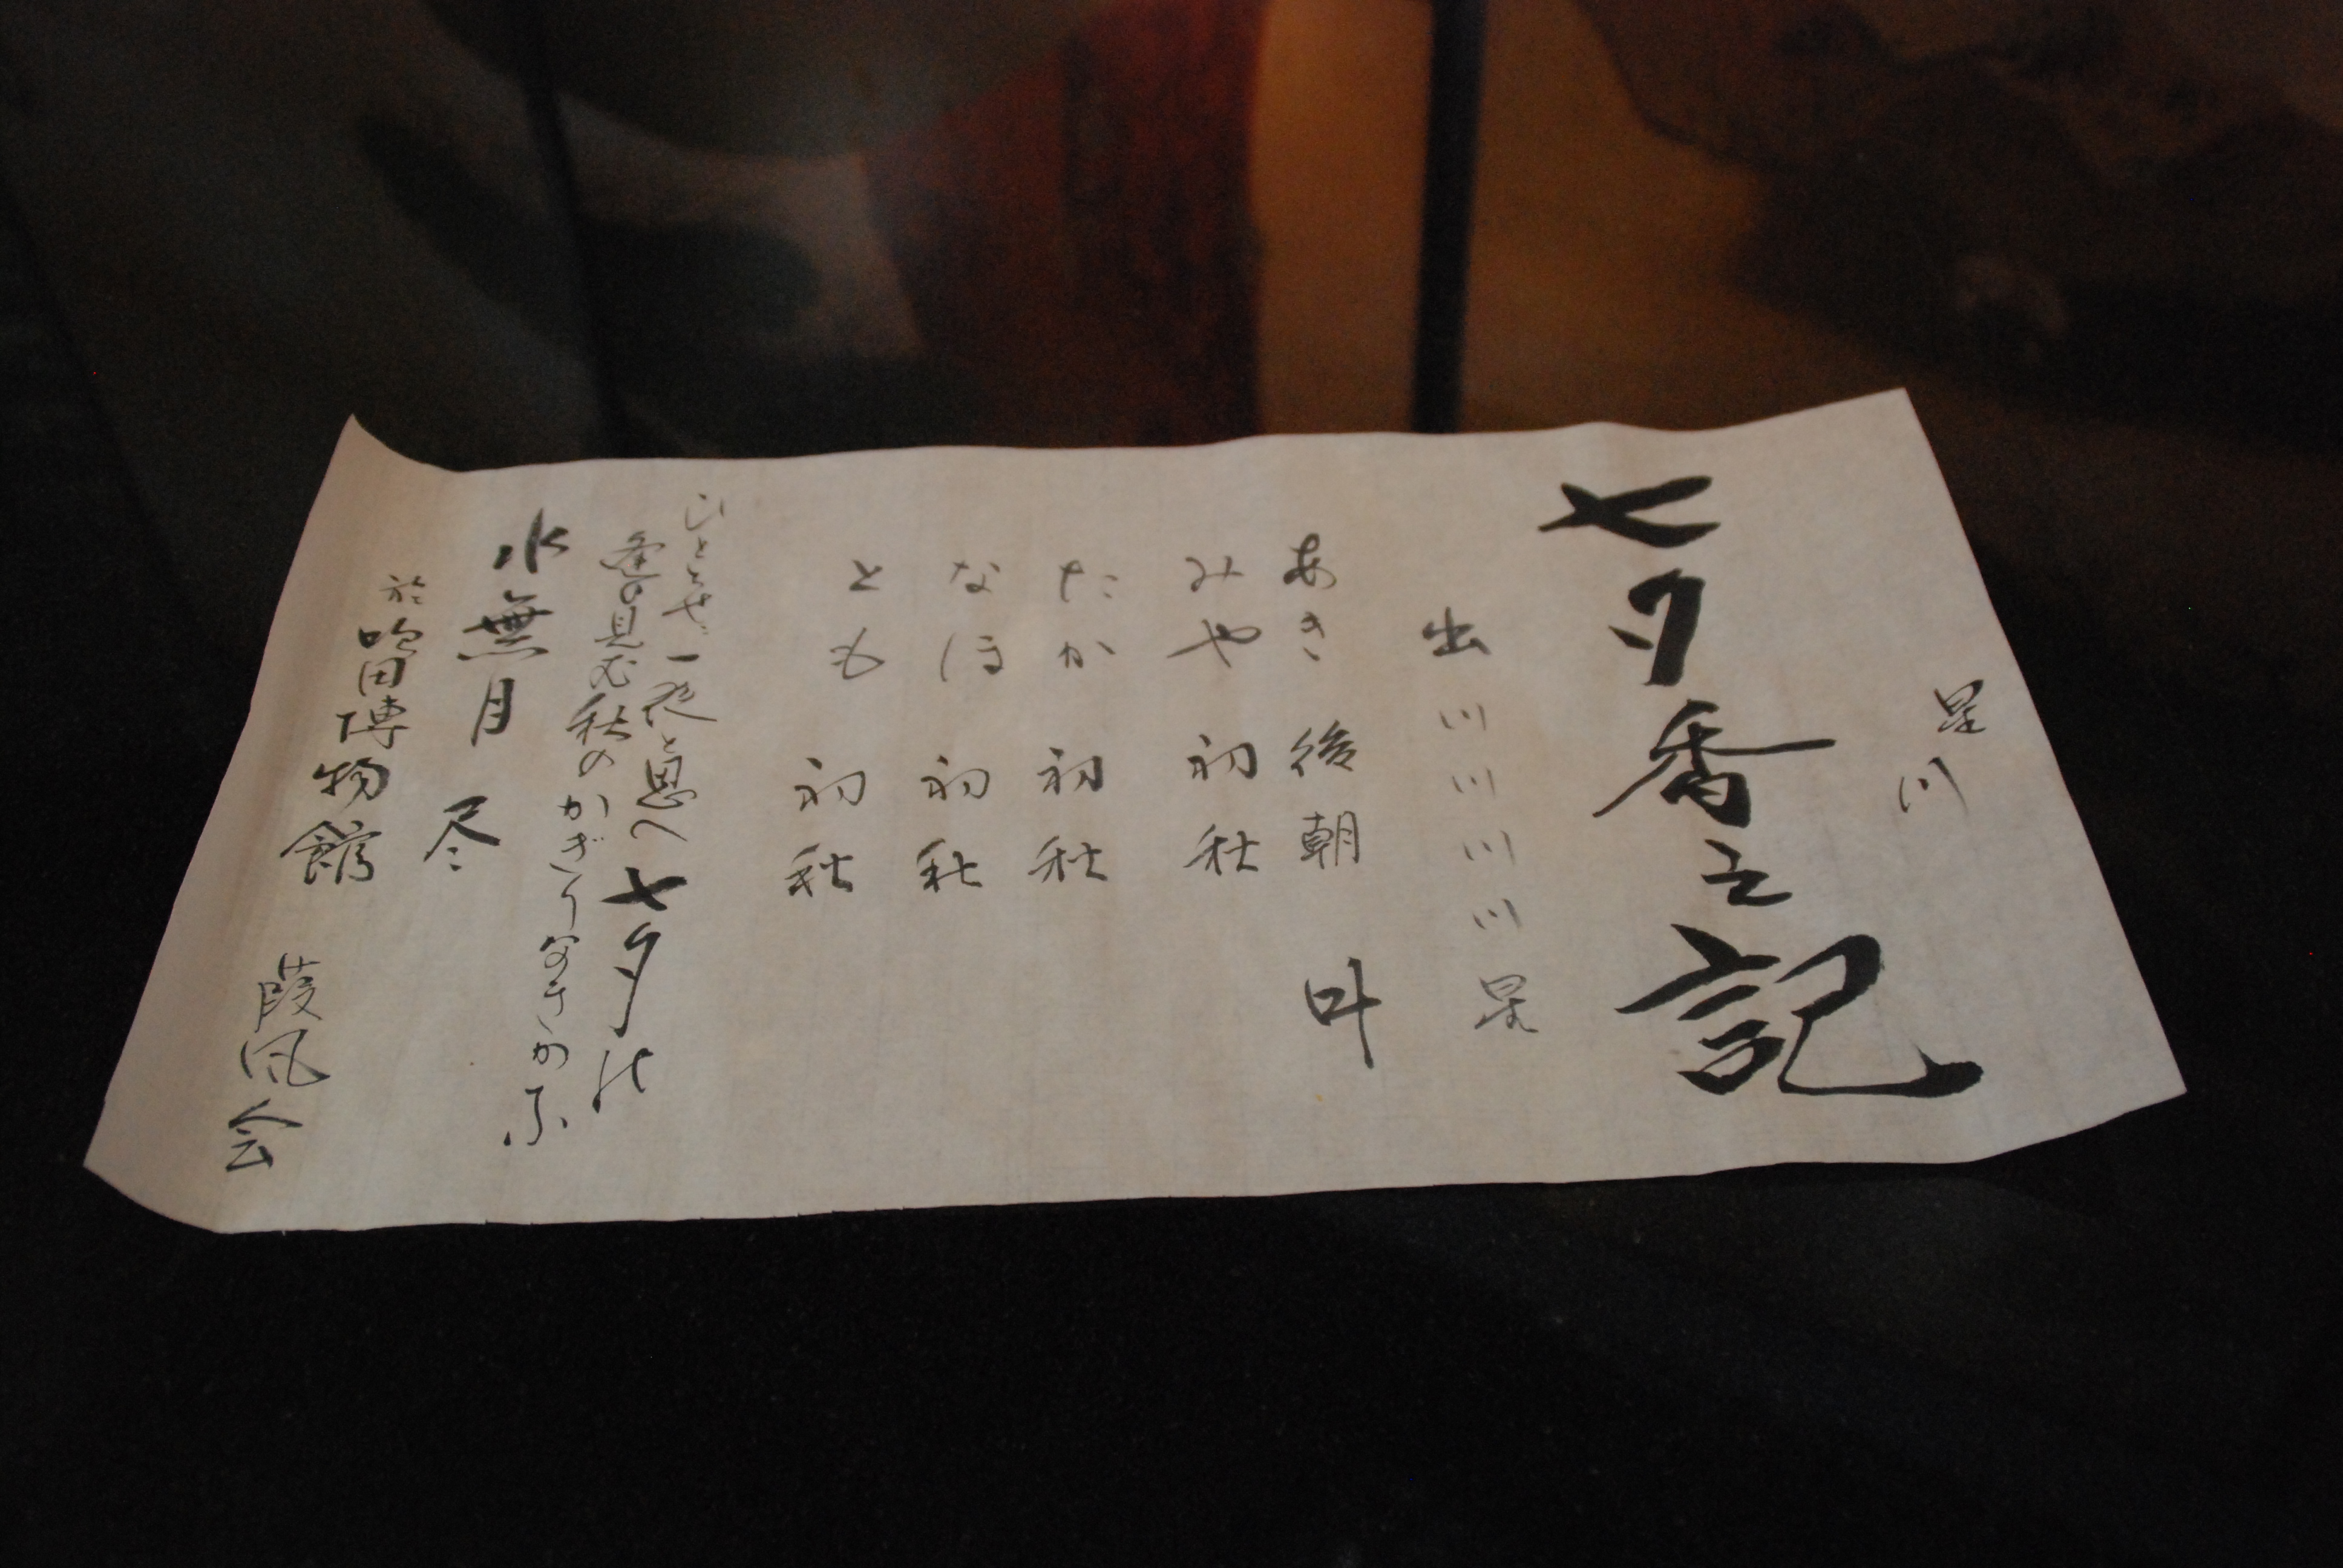 星川
七夕香之記
出川川川川星
あき 後朝 叶
みや 初秋
たか 初秋
なほ 初秋
とも 初秋
ひとゝせに一夜と思へ七夕の
逢見む秋のかぎりなきかな
水無月 尽
於吹田博物館 葭風会